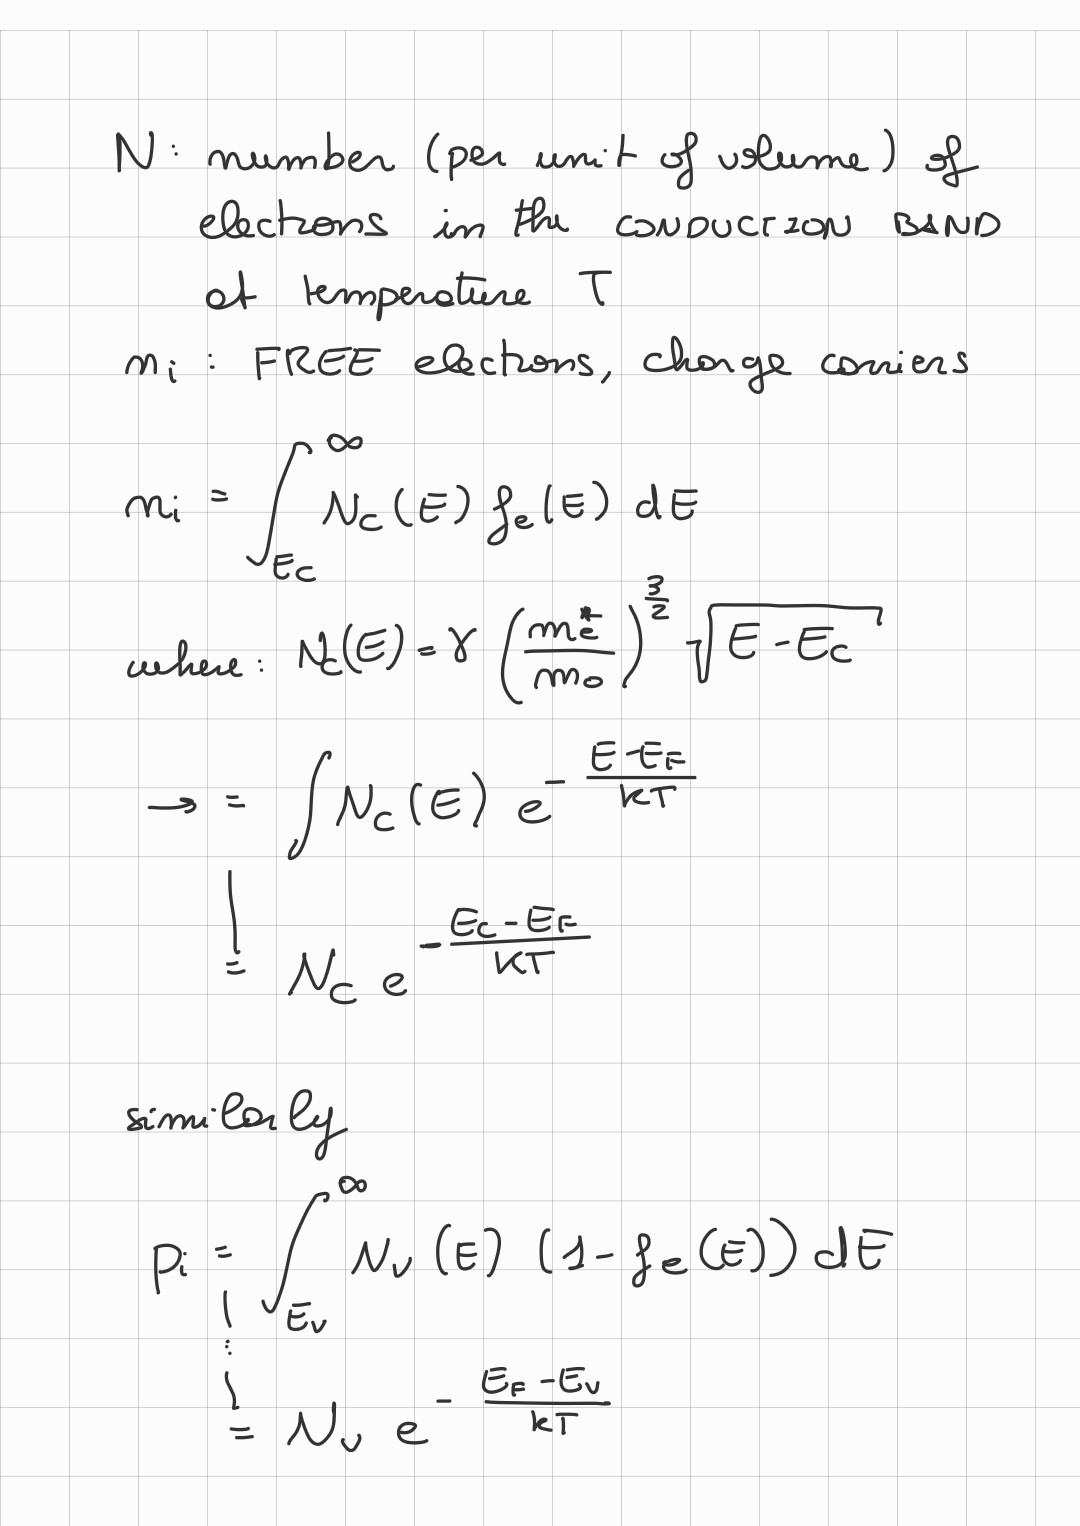 N: number (per unit of volume) of
electrons in the CONDUCTION BAND
at temperature T
n_i : FREE electrons, charge carriers
n_i = ∫_{E_C}^{∞} N_C(E) f_e(E) dE
where: N_C(E) = γ (m_e^*/m_0)^{3/2} √(E - E_C)
→ = ∫ N_C(E) e^{- (E - E_F)/KT}
= N_C e^{- (E_C - E_F)/KT}
similarly
p_i = ∫_{E_V}^{∞} N_V(E) (1 - f_e(E)) dE
⋮
= N_V e^{- (E_F - E_V)/kT}